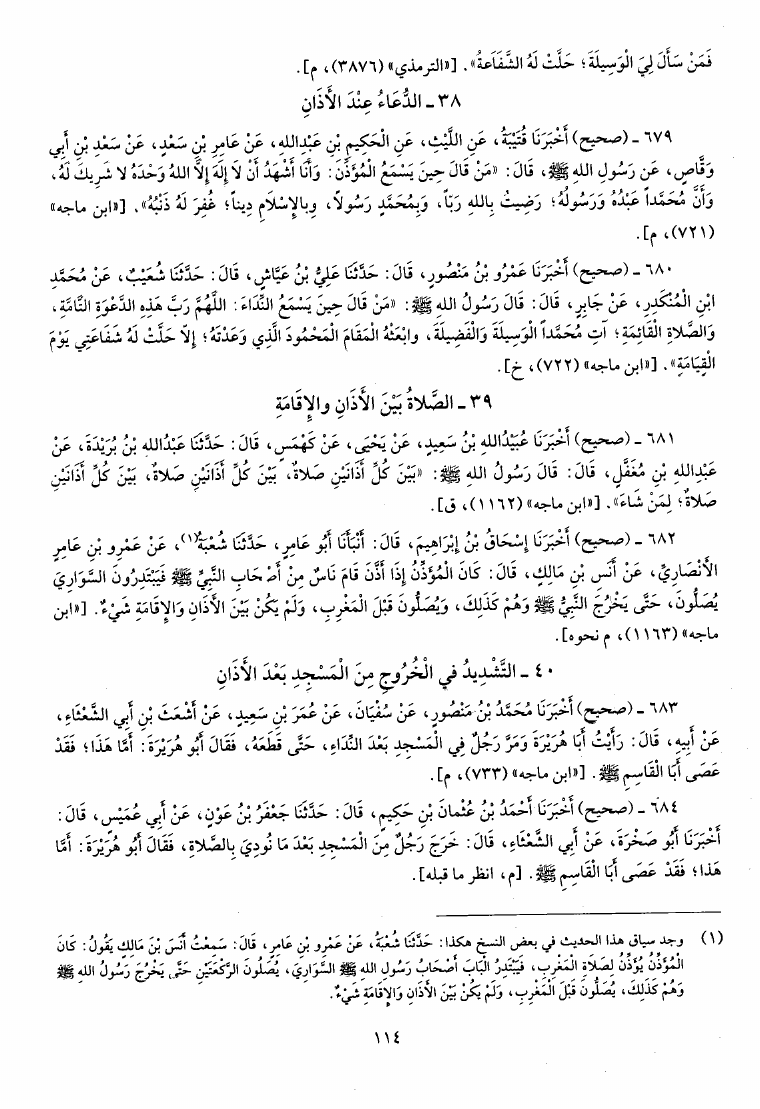 فَمَنْ سَأَلَ لِيَ الْوَسِيلَةَ؛ حَلَّتْ لَهُ الشَّفَاعَةُ». [«الترمذي» (٣٨٧٦)، م].
٣٨ ـ الدُّعَاءُ عِنْدَ الأَذَانِ
٦٧٩ ـ (صحيح) أَخْبَرَنَا قُتَيْبَةُ، عَنِ اللَّيْثِ، عَنِ الْحَكِيمِ بْنِ عَبْدِاللهِ، عَنْ عَامِرِ بْنِ سَعْدٍ، عَنْ سَعْدِ بْنِ أَبِي
وَقَّاصٍ، عَن رَسُولِ اللهِ ﷺ، قَالَ: «مَنْ قَالَ حِينَ يَسْمَعُ الْمُؤَذِّنَ: وَأَنَا أَشْهَدُ أَنْ لَا إِلَهَ إِلَّا اللهُ وَحْدَهُ لا شَرِيكَ لَهُ،
وَأَنَّ مُحَمَّداً عَبْدُهُ وَرَسُولُهُ؛ رَضِيتُ بِاللهِ رَبّاً، وَبِمُحَمَّدٍ رَسُولاً، وبِالإِسْلَامِ دِيناً؛ غُفِرَ لَهُ ذَنْبُهُ». [«ابن ماجه»
(٧٢١)، م].
٦٨٠ ـ (صحيح) أَخْبَرَنَا عَمْرُو بْنُ مَنْصُورٍ، قَالَ: حَدَّثَنَا عَلِيُّ بْنُ عَيَّاشٍ، قَالَ: حَدَّثَنَا شُعَيْبٌ، عَنْ مُحَمَّدِ
ابْنِ الْمُنْكَدِرِ، عَنْ جَابِرٍ، قَالَ: قَالَ رَسُولُ اللهِ ﷺ: «مَنْ قَالَ حِينَ يَسْمَعُ النِّدَاءَ: اللَّهُمَّ رَبَّ هَذِهِ الدَّعْوَةِ التَّامَّةِ،
وَالصَّلاةِ الْقَائِمَةِ؛ آتِ مُحَمَّداً الْوَسِيلَةَ وَالْفَضِيلَةَ، وابْعَثْهُ الْمَقَامَ الْمَحْمُودَ الَّذِي وَعَدْتَهُ؛ إِلاَّ حَلَّتْ لَهُ شَفَاعَتِي يَوْمَ
الْقِيَامَةِ». [«ابن ماجه» (٧٢٢)، خ].
٣٩ ـ الصَّلاةُ بَيْنَ الأَذَانِ والإِقَامَةِ
٦٨١ ـ (صحيح) أَخْبَرَنَا عُبَيْدُاللهِ بْنُ سَعِيدٍ، عَنْ يَحْيَى، عَنْ كَهْمَسٍ، قَالَ: حَدَّثَنَا عَبْدُالله بْنُ بُرَيْدَةَ، عَنْ
عَبْدِاللهِ بْنِ مُغَفَّلٍ، قَالَ: قَالَ رَسُولُ اللهِ ﷺ: «بَيْنَ كُلِّ أَذَانَيْنِ صَلاةٌ، بَيْنَ كُلِّ أَذَانَيْنِ صَلاةٌ، بَيْنَ كُلِّ أَذَانَيْنِ
صَلاةٌ؛ لِمَنْ شَاءَ». [«ابن ماجه» (١١٦٢)، ق].
٦٨٢ ـ (صحيح) أَخْبَرَنَا إِسْحَاقُ بْنُ إِبْرَاهِيمَ، قَالَ: أَنْبَأَنَا أَبُو عَامِرٍ، حَدَّثَنَا شُعْبَةُ(١)، عَنْ عَمْرِو بْنِ عَامِرٍ
الأَنْصَارِيِّ، عَنْ أَنَسِ بْنِ مَالِكٍ، قَالَ: كَانَ الْمُؤَذِّنُ إِذَا أَذَّنَ قَامَ نَاسٌ مِنْ أَصْحَابِ النَّبِيِّ ﷺ فَيَبْتَدِرُونَ السَّوَارِيَ
يُصَلُّونَ، حَتَّى يَخْرُجَ النَّبِيُّ ﷺ وَهُمْ كَذَلِكَ، وَيُصَلُّونَ قَبْلَ الْمَغْرِبِ، وَلَمْ يَكُنْ بَيْنَ الأَذَانِ وَالإِقَامَةِ شَيْءٌ. [«ابن
ماجه» (١١٦٣)، م نحوه].
٤٠ ـ التَّشْدِيدُ في الْخُرُوجِ مِنَ الْمَسْجِدِ بَعْدَ الأَذَانِ
٦٨٣ ـ (صحيح) أَخْبَرَنَا مُحَمَّدُ بْنُ مَنْصُورٍ، عَنْ سُفْيَانَ، عَنْ عُمَرَ بْنِ سَعِيدٍ، عَنْ أَشْعَثَ بْنِ أَبِي الشَّعْثَاءِ،
عَنْ أَبِيهِ، قَالَ: رَأَيْتُ أَبَا هُرَيْرَةَ وَمَرَّ رَجُلٌ فِي الْمَسْجِدِ بَعْدَ النِّدَاءِ، حَتَّى قَطَعَهُ، فَقَالَ أَبُو هُرَيْرَةَ: أَمَّا هَذَا؛ فَقَدْ
عَصَى أَبَا الْقَاسِمِ ﷺ. [«ابن ماجه» (٧٣٣)، م].
٦٨٤ ـ (صحيح) أَخْبَرَنَا أَحْمَدُ بْنُ عُثْمانَ بْنِ حَكِيمٍ، قَالَ: حَدَّثَنَا جَعْفَرُ بْنُ عَوْنٍ، عَنْ أَبِي عُمَيْسٍ، قَالَ:
أَخْبَرَنَا أَبُو صَخْرَةَ، عَنْ أَبِي الشَّعْثَاءِ، قَالَ: خَرَجَ رَجُلٌ مِنَ الْمَسْجِدِ بَعْدَ مَا نُودِيَ بِالصَّلَاةِ، فَقَالَ أَبُو هُرَيْرَةَ: أَمَّا
هَذا؛ فَقَدْ عَصَى أَبَا الْقَاسِمِ ﷺ. [م، انظر ما قبله].
(١) وجد سياق هذا الحديث في بعض النسخ هكذا: حَدَّثَنَا شُعْبَةُ، عَنْ عَمْرِو بْنِ عَامِرٍ، قَالَ: سَمِعْتُ أَنَسَ بْنَ مَالِكٍ يَقُولُ: كَانَ
الْمُؤَذِّنُ يُؤَذِّنُ لِصَلَاةِ الْمَغْرِبِ، فَيَبْتَدِرُ الْبَابَ أَصْحَابُ رَسُولِ اللهِ ﷺ السَّوَارِيَ، يُصَلُّونَ الرَّكْعَتَيْنِ حَتَّى يَخْرُجَ رَسُولُ اللهِ ﷺ
وَهُمْ كَذَلِكَ، يُصَلُّونَ قَبْلَ الْمَغْرِبِ، وَلَمْ يَكُنْ بَيْنَ الأَذَانِ وَالإِقَامَةِ شَيْءٌ.
١١٤